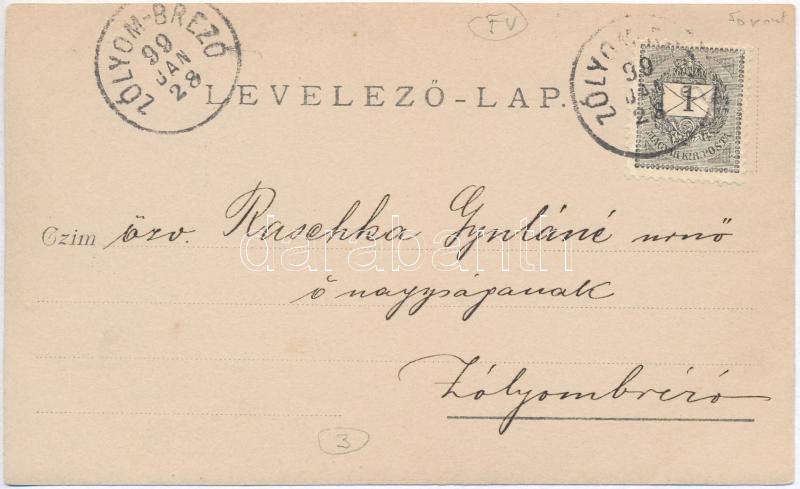 ZÓLYOM-BREZÓ
99
JAN
28
FV
LEVELEZŐ-LAP.
ZÓLYOM-BREZÓ
99
JAN
28
1
KR
MAGYAR KIR. POSTA
Czim özv. Raschka Gyuláné urnő
ő nagyságanak
Zólyombrézó
3
darabanth